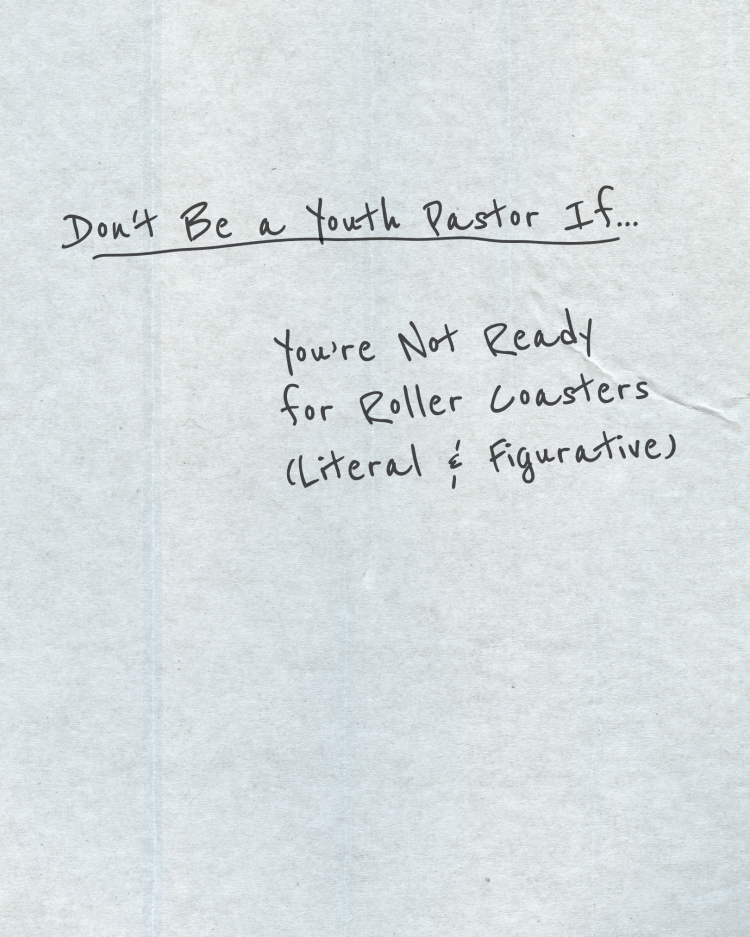 Don't Be a Youth Pastor If...
You're Not Ready
for Roller Coasters
(Literal & Figurative)